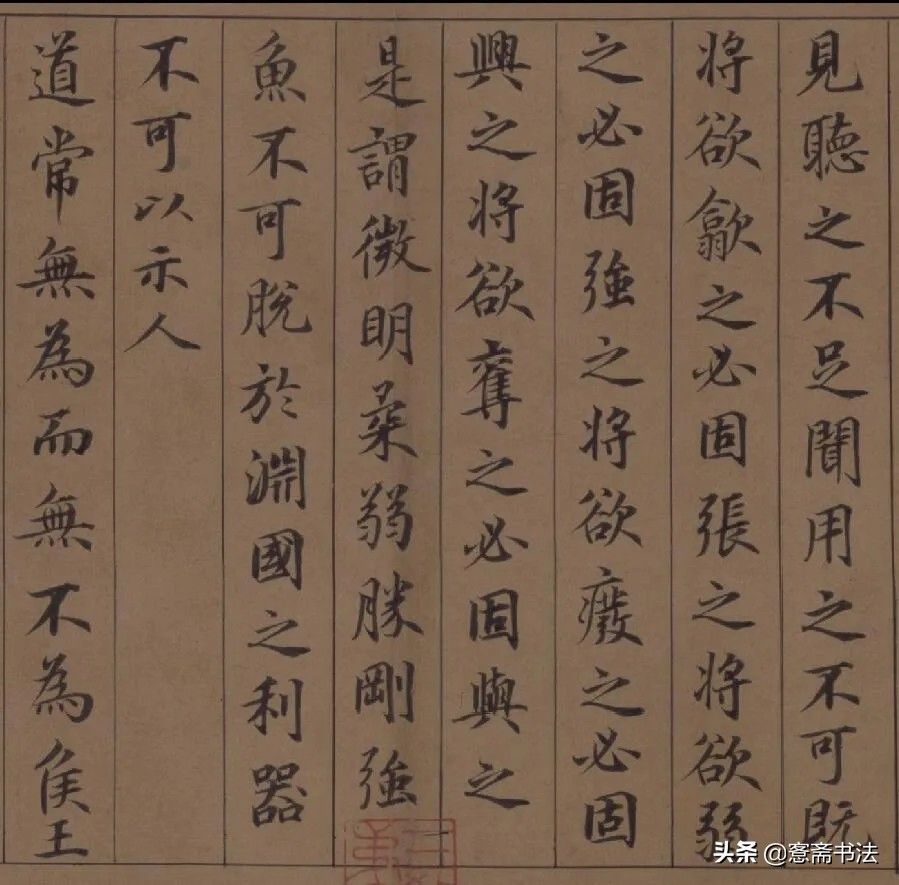 見聽之不足聞用之不可既
將欲歙之必固張之將欲弱
之必固強之將欲廢之必固
興之將欲奪之必固與之
是謂微明柔弱勝剛強
魚不可脫於淵國之利器
不可以示人
道常無為而無不為侯王
头条 @窓斋书法